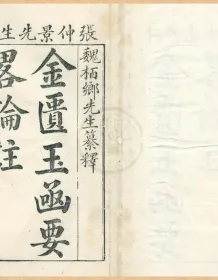 張仲景先生
魏栢鄉先生纂釋
金匱玉函要
畧論註